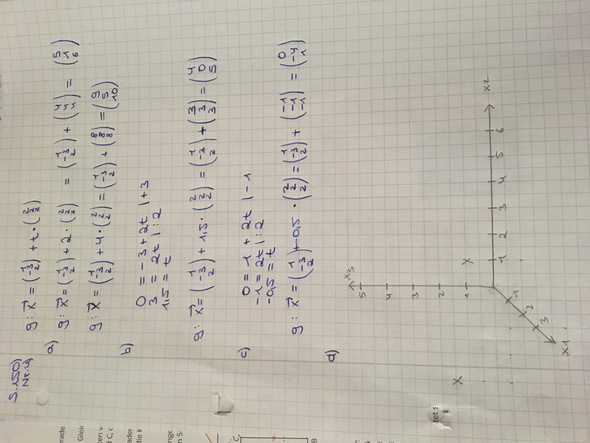 S.150)
Nr.4)
g: x⃗ = (1 -3 2) + t · (2 2 2)
a) g: x⃗ = (1 -3 2) + 2 · (2 2 2) = (1 -3 2) + (4 4 4) = (5 1 6)
g: x⃗ = (1 -3 2) + 4 · (2 2 2) = (1 -3 2) + (8 8 8) = (9 5 10)
b) 0 = -3 + 2t | +3
3 = 2t | :2
1,5 = t
g: x⃗ = (1 -3 2) + 1,5 · (2 2 2) = (1 -3 2) + (3 3 3) = (4 0 5)
c) 0 = 1 + 2t | -1
-1 = 2t | :2
-0,5 = t
g: x⃗ = (1 -3 2) + -0,5 · (2 2 2) = (1 -3 2) + (-1 -1 -1) = (0 -4 1)
d)
x3
5
4
3
2
1
1 2 3 4 5 6 x2
1
2
3
x1